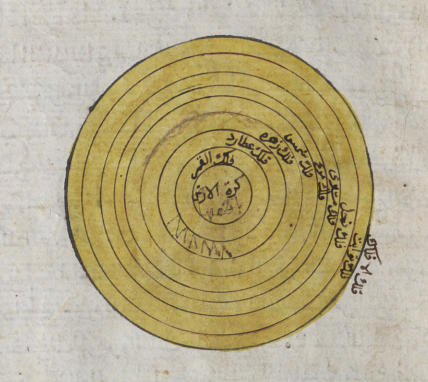 كرة الارض
فلك القمر
فلك عطارد
فلك زهره
فلك شمس
فلك مريخ
فلك مشتري
فلك زحل
فلك ثوابت
فلك الافلاك